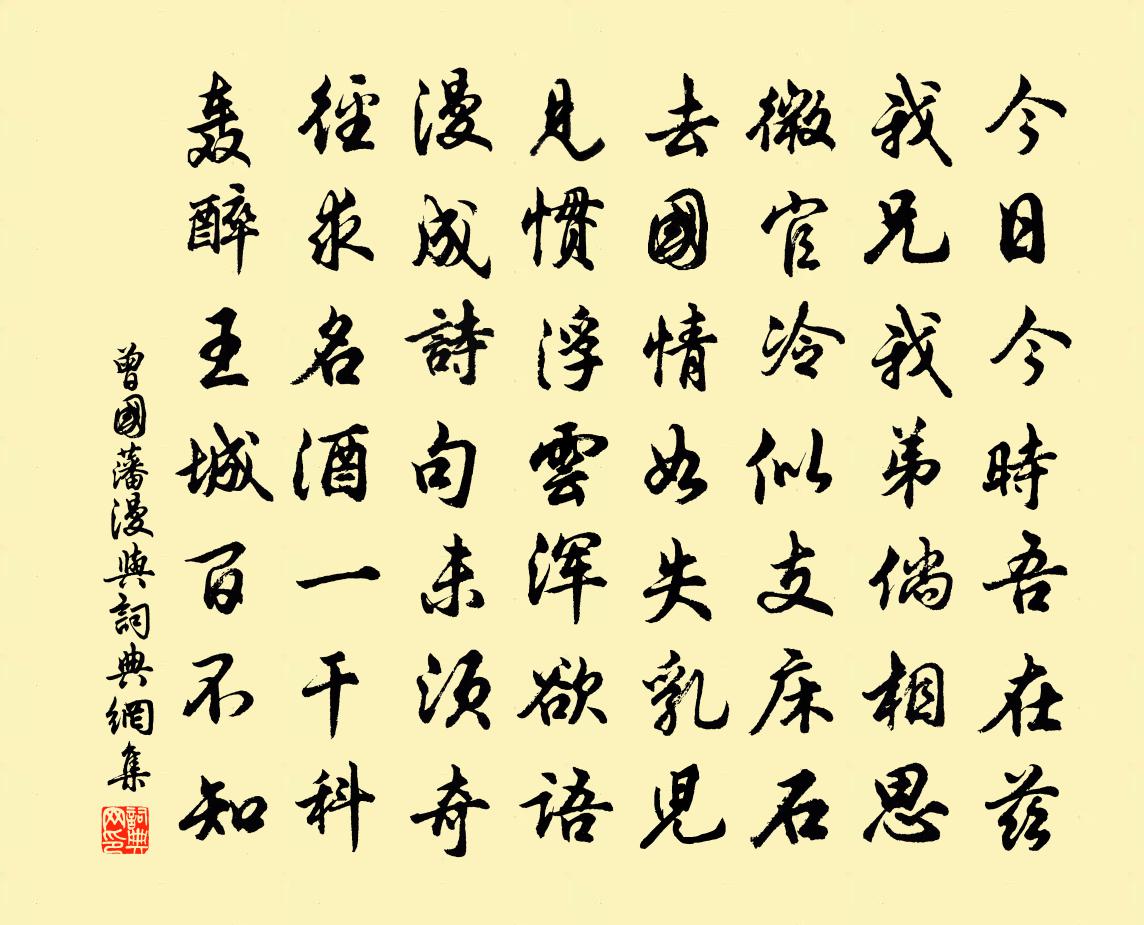 今日今時吾在兹
我兄我弟倘相思
微官冷似支床石
去國情如失乳児
見慣浮雲浑欲語
漫成詩句未须奇
徑求名酒一千科
轰醉王城百不知
曾國藩漫興詞典網集
詞典網印